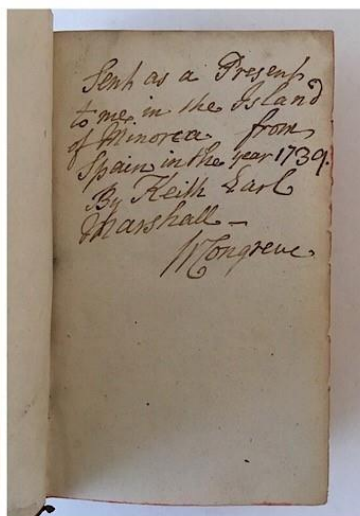 Sent as a Present
to me in the Island
of Minorca from
Spain in the year 1739.
By Keith Earl
Marshall –
W Congreve